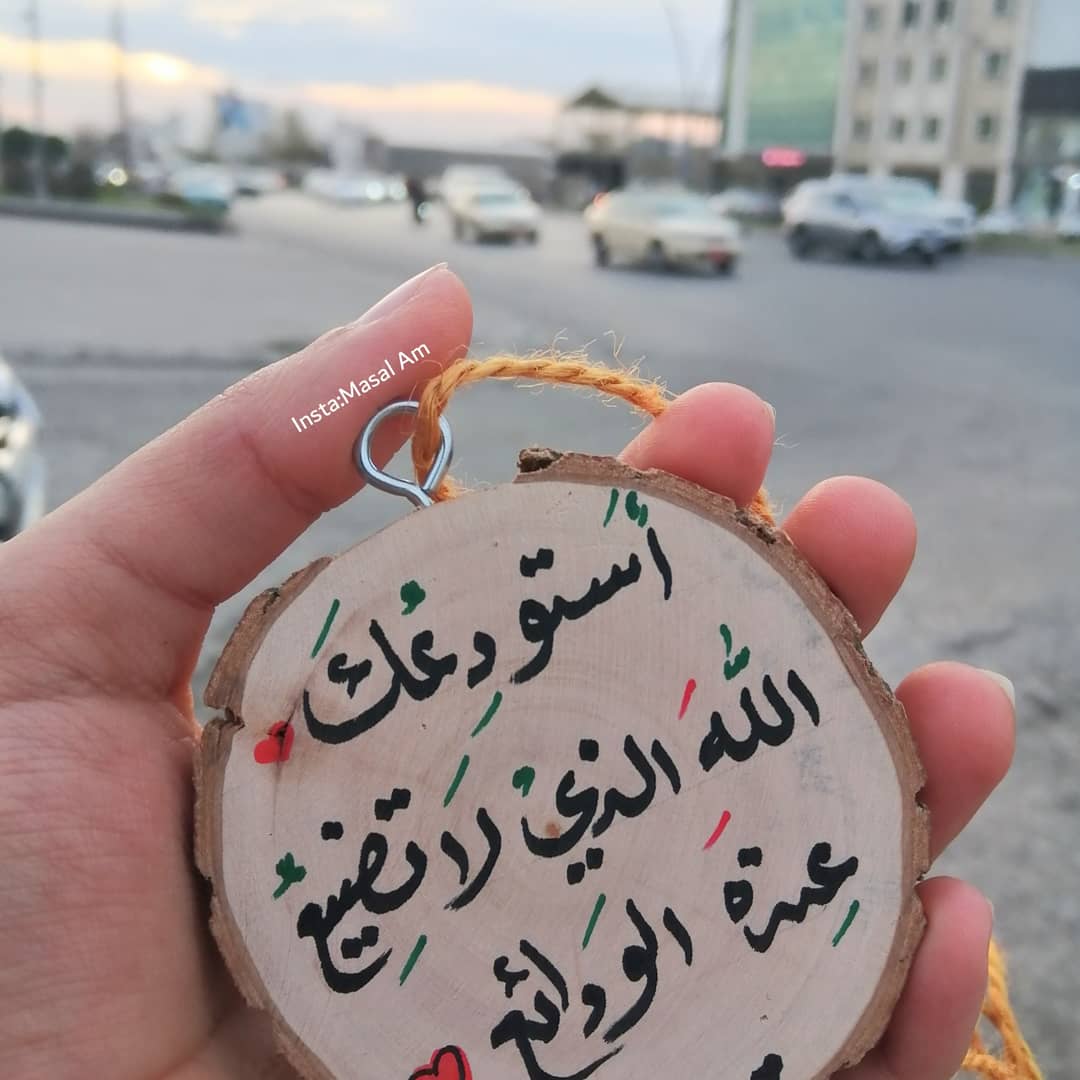 Insta:Masal Am
أَستودعُكَ
اللّٰهَ الذيْ لَا تَضيِعُ
عِندَة الوَدائع